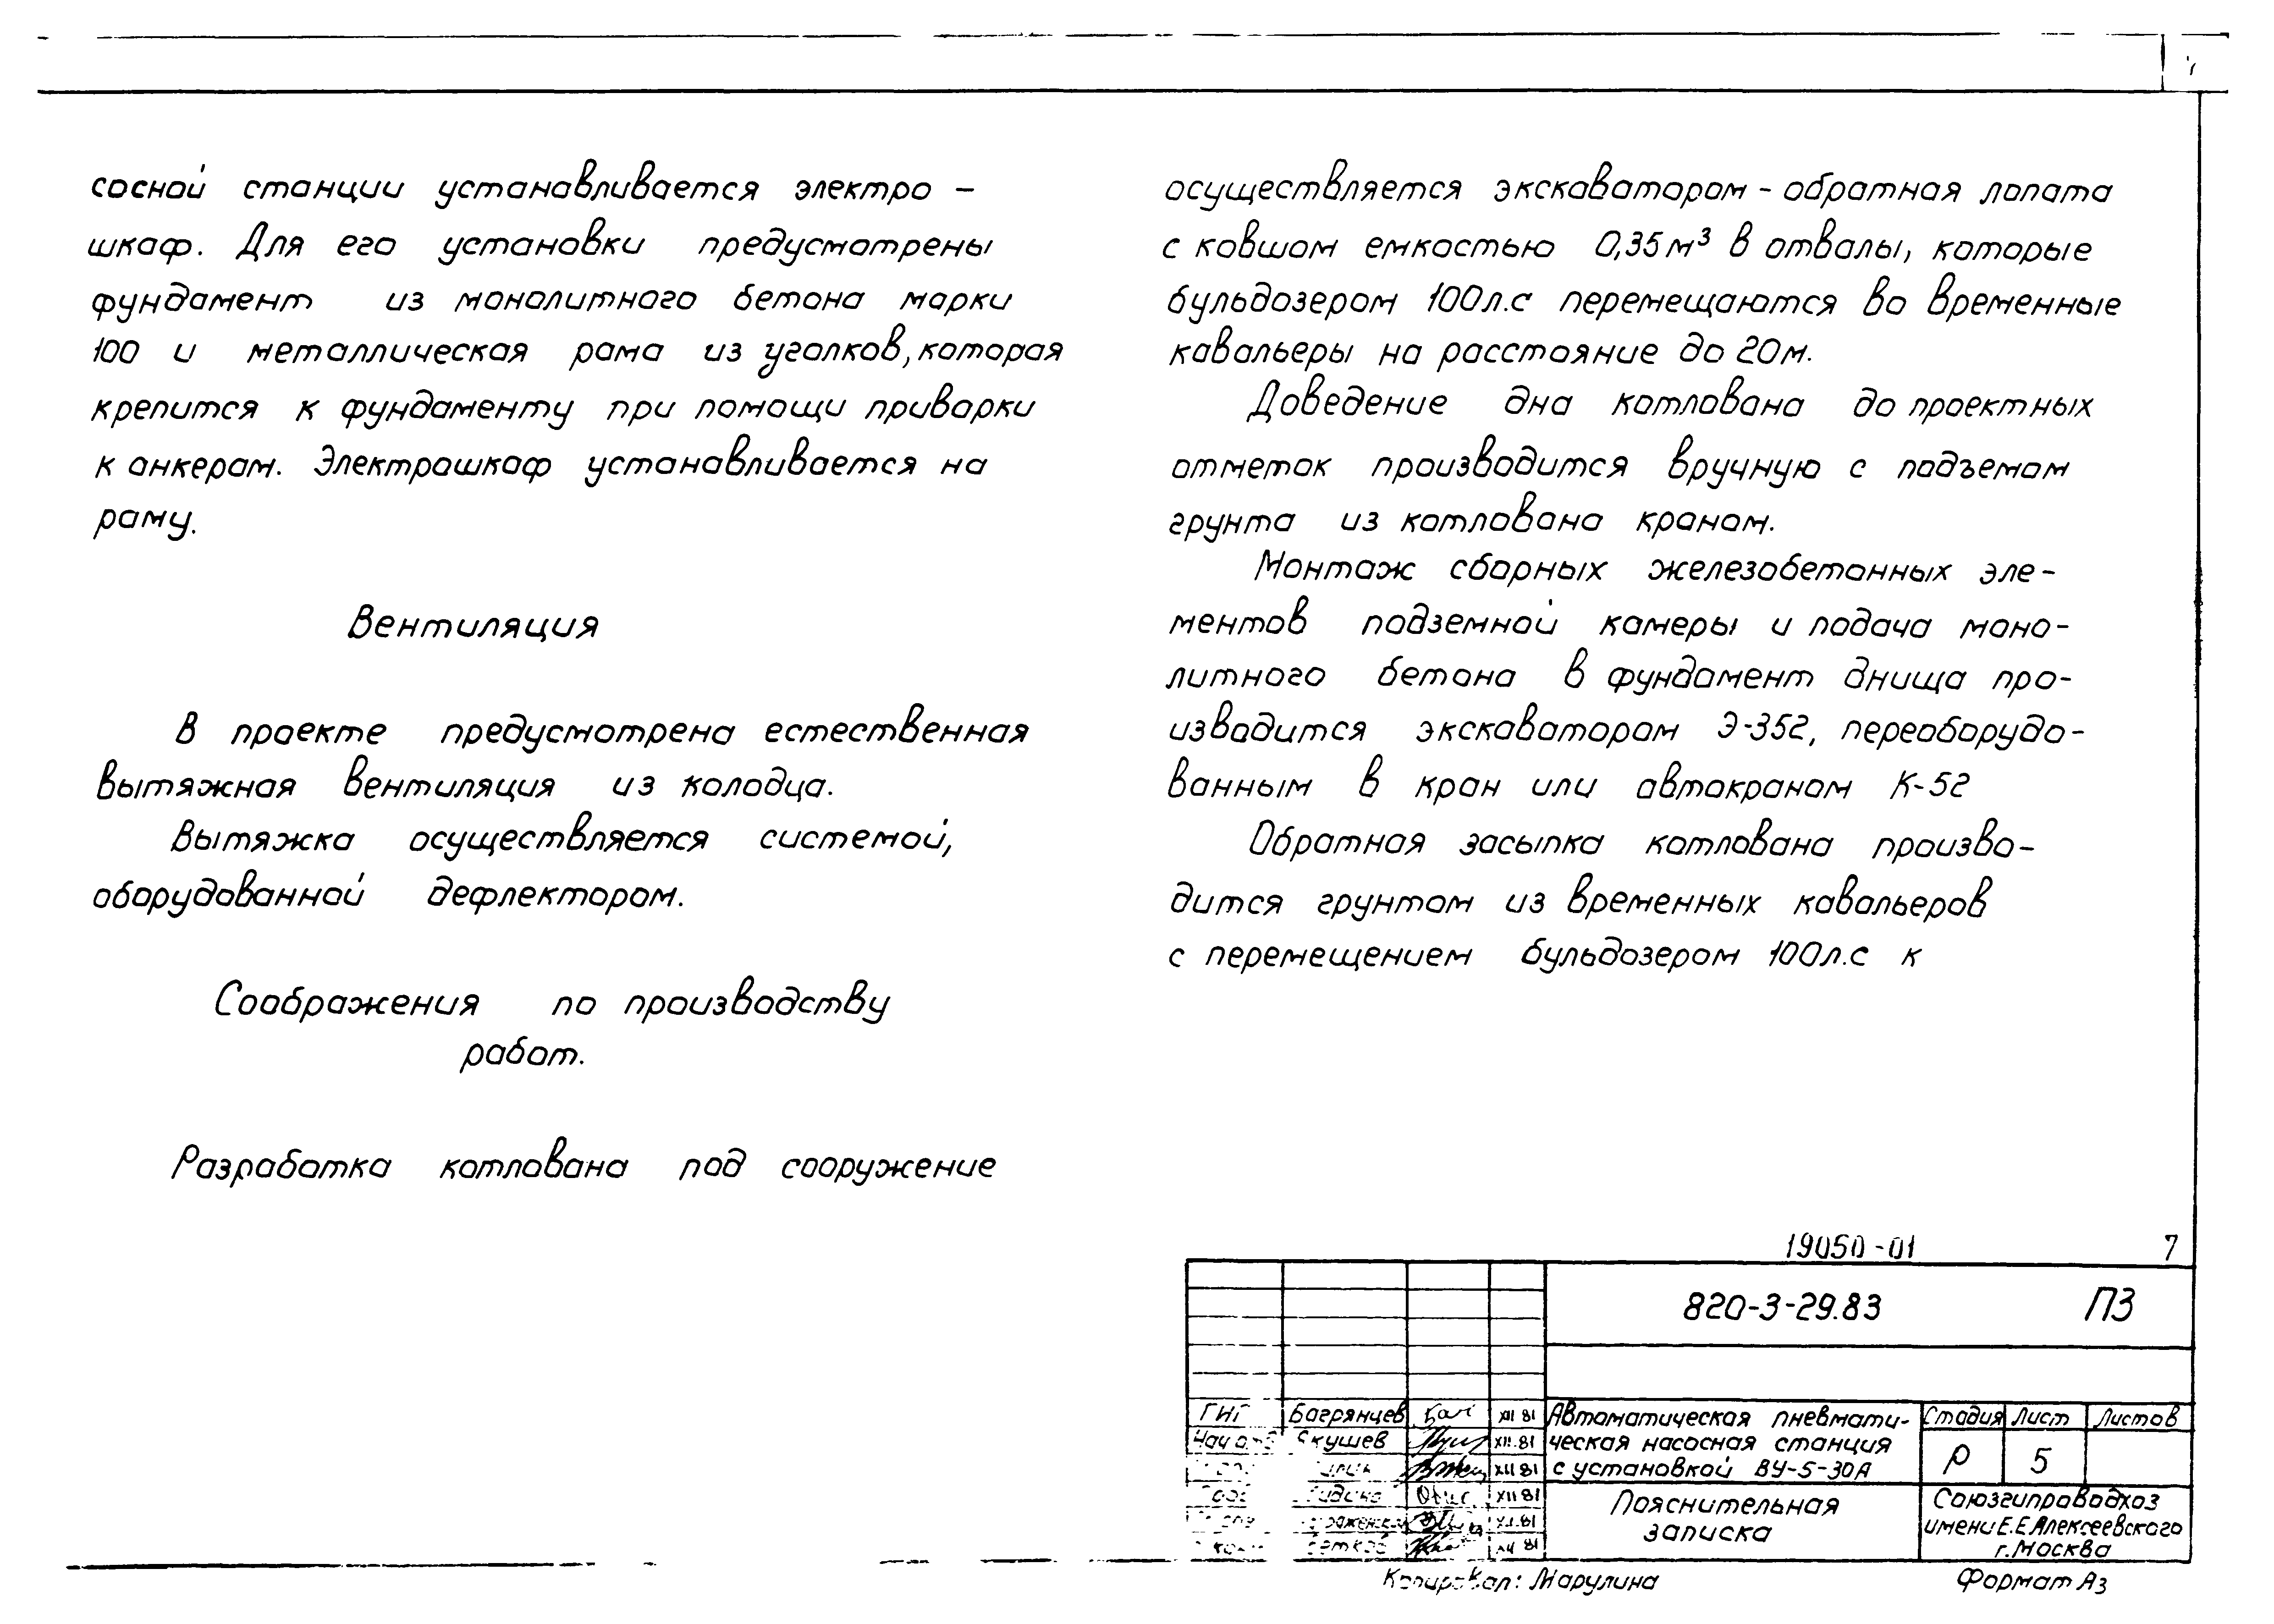 сосной станции устанавливается электро –
шкаф. Для его установки предусмотрены
фундамент из монолитного бетона марки
100 и металлическая рама из уголков, которая
крепится к фундаменту при помощи приварки
к анкерам. Электрошкаф устанавливается на
раму.
Вентиляция
В проекте предусмотрена естественная
вытяжная вентиляция из колодца.
Вытяжка осуществляется системой,
оборудованной дефлектором.
Соображения по производству
работ.
Разработка котлована под сооружение
осуществляется экскаватором - обратная лопата
с ковшом емкостью 0,35 м³ в отвалы, которые
бульдозером 100 л.с перемещаются во временные
кавальеры на расстояние до 20м.
Доведение дна котлована до проектных
отметок производится вручную с подъемом
грунта из котлована краном.
Монтаж сборных железобетонных эле-
ментов подземной камеры и подача моно-
литного бетона в фундамент днища про-
изводится экскаватором Э-352, переоборудо-
ванным в кран или автокраном К-52
Обратная засыпка котлована произво-
дится грунтом из временных кавальеров
с перемещением бульдозером 100л.с к
19050-01 7
820-3-29.83 ПЗ
ГИП Багрянцев XII 81
Якушев XII.81
XII 81
XII 81
81
81
Автоматическая пневмати-
ческая насосная станция
с установкой ВУ-5-30А
Стадия Лист Листов
Р 5
Пояснительная
записка
Союзгипроводхоз
имени Е.Е.Алексеевского
г.Москва
Копировал: Марулина Формат А3